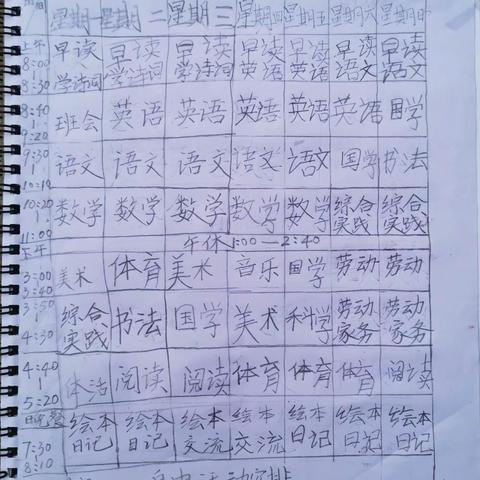 时间 星期一 星期二 星期三 星期四 星期五 星期六 星期日
上午 8:00 8:30 早读 学诗词 早读 学诗词 早读 学诗词 早读 英语 早读 英语 早读 语文 早读 语文
8:40 9:20 班会 英语 英语 英语 英语 英语 国学
9:30 10:10 语文 语文 语文 语文 语文 国学 书法
10:20 11:00 数学 数学 数学 数学 数学 综合实践 综合实践
午休 1:00—2:40
下午 3:00 3:40 美术 体育 美术 音乐 国学 劳动 劳动
3:50 4:30 综合实践 书法 国学 美术 科学 劳动家务 劳动家务
4:40 5:20 体活 阅读 阅读 体育 体育 体育 阅读
晚餐 7:30 8:10 绘本日记 绘本日记 绘本交流 绘本交流 绘本日记 绘本日记 绘本日记